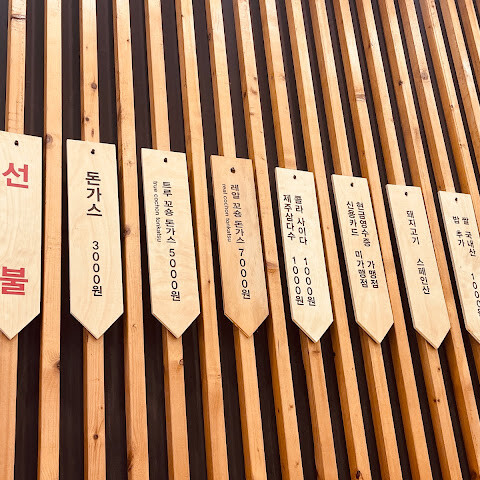 선불
돈가스 3000원
트루 꼬숑 돈가스 5000원
true cochon tonkatsu
레알 꼬숑 돈가스 7000원
real cochon tonkatsu
콜라 사이다 1000원
제주삼다수 1000원
현금영수증 가맹점
신용카드 미가맹점
돼지고기 스페인산
쌀 국내산
밥 추가